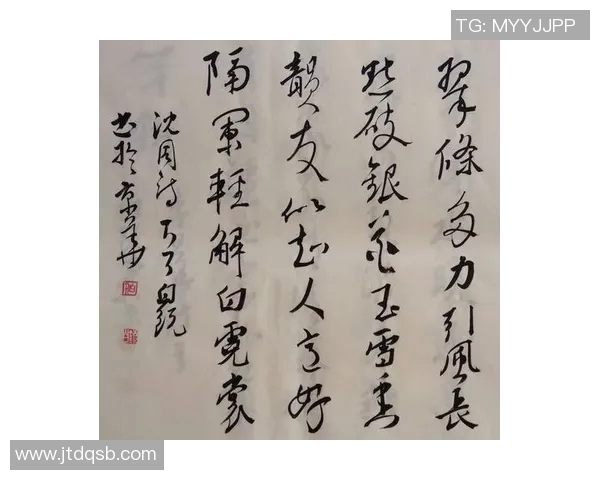 TG: MYYJJPP
翠條多力引風長
點破銀花玉雪香
韻友似知人意好
隔輕解白霓裳
沈周詩
书於京華
www.jtdqsb.com